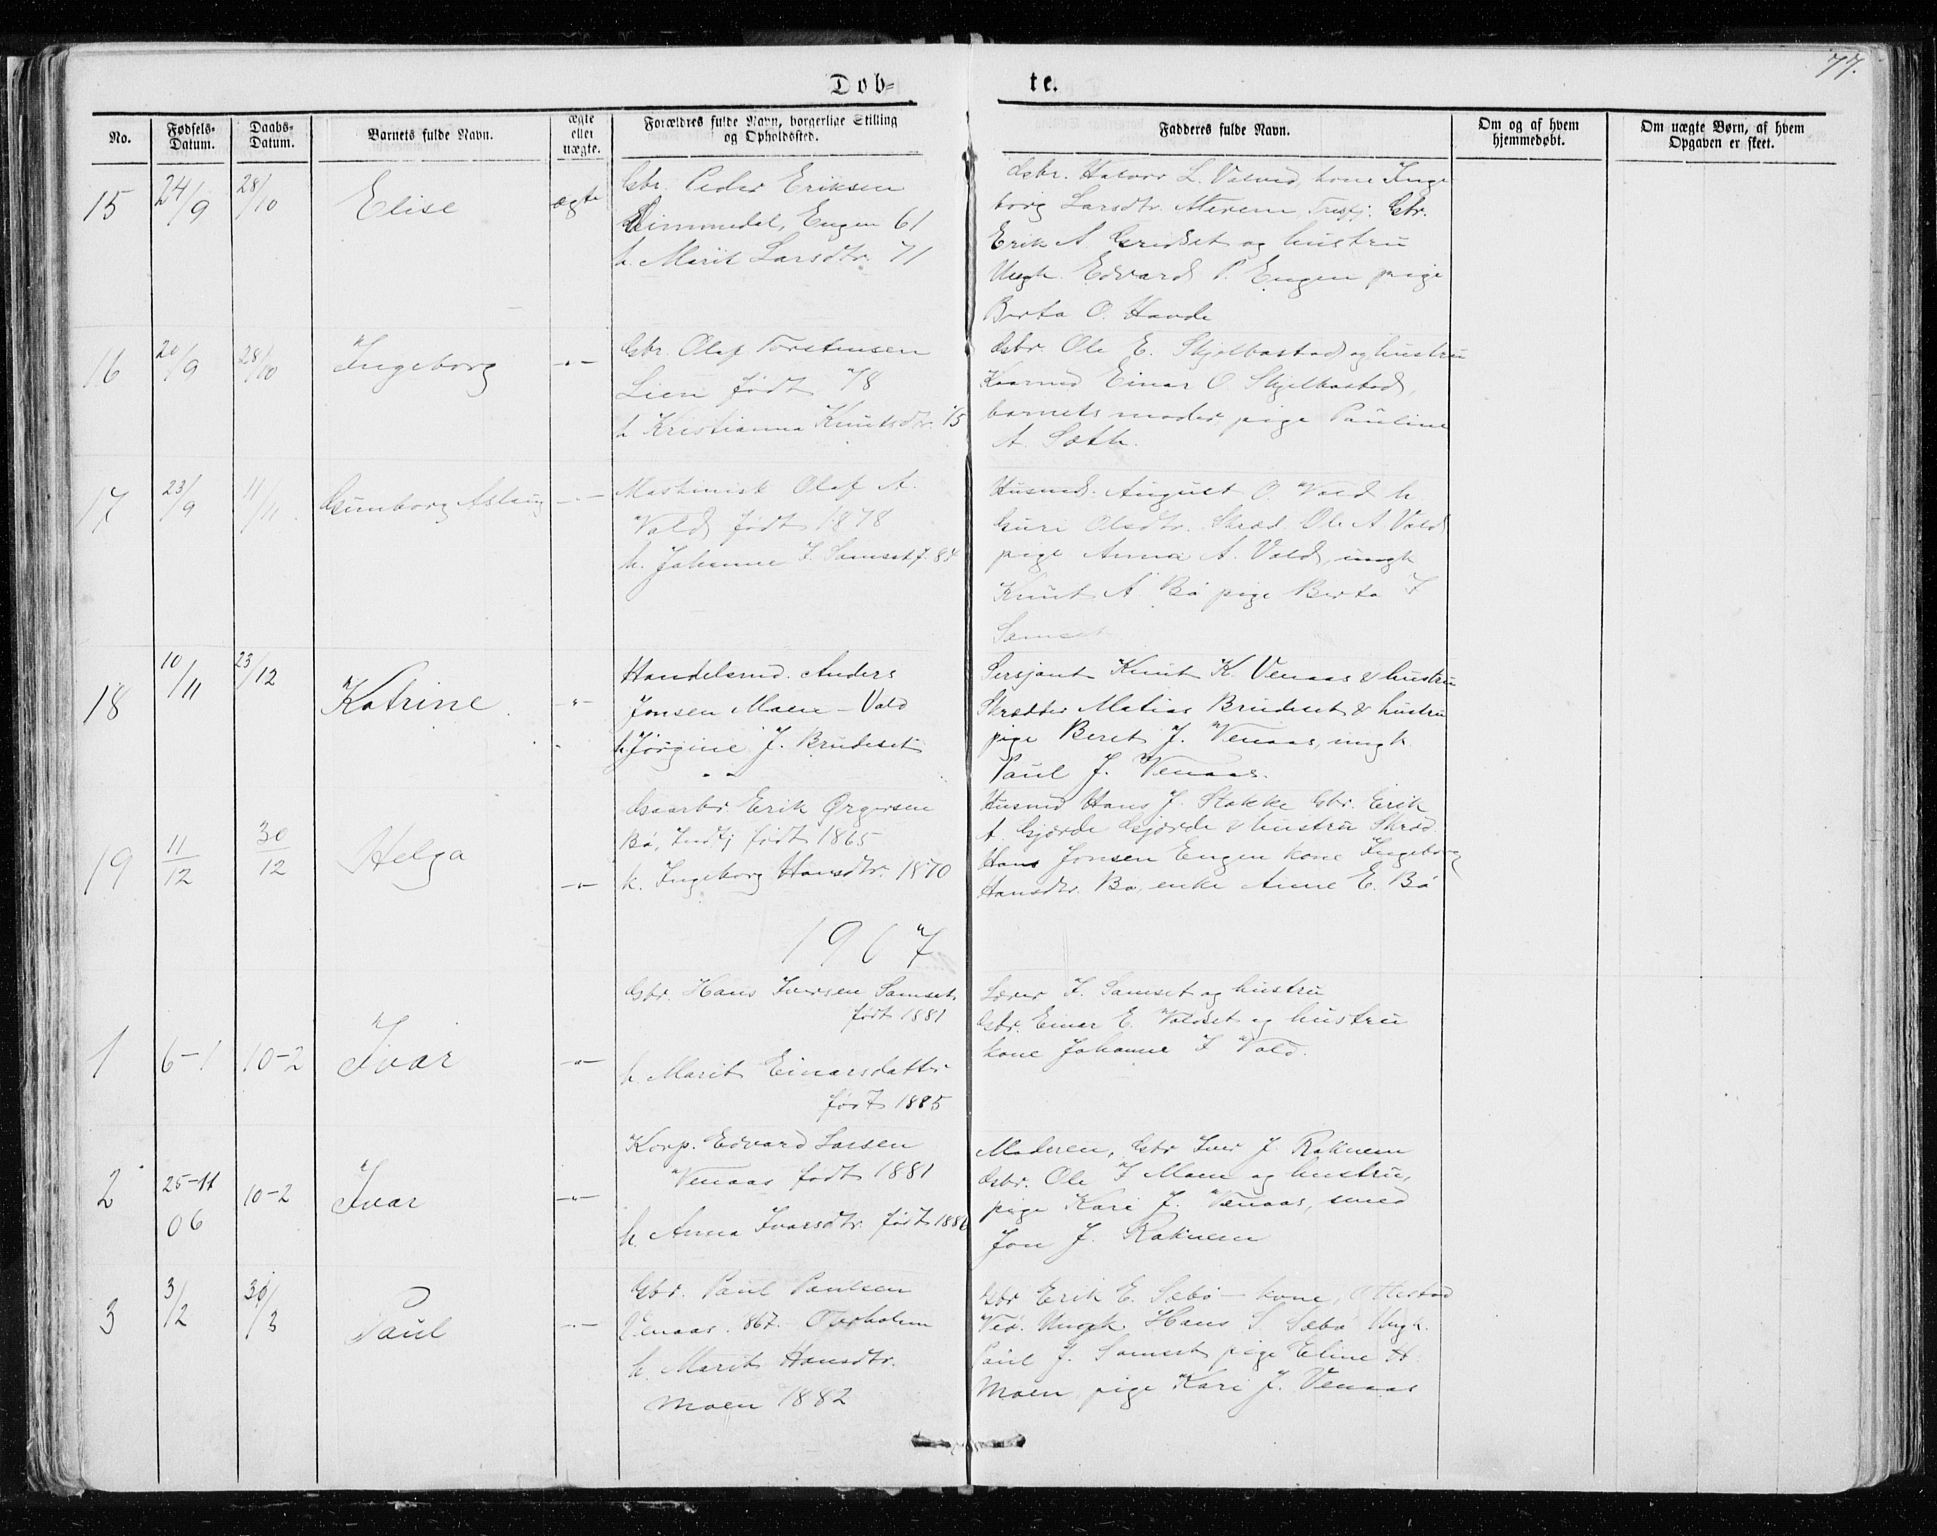 77.
Døb- te.
No. Fødsels-Datum. Daabs-Datum. Barnets fulde Navn. ægte eller uægte. Forældres fulde Navn, borgerlige Stilling og Opholdssted. Fadderes fulde Navn. Om og af hvem hjemmedøbt. Om uægte Børn, af hvem Opgaven er skeet.
15 24/9 28/10 Elise ægte
Gbr. Peder Eriksen
Engen 61
h. Marit Larsdtr. 71
Gbr. Halvor L. kone Inge
borg Larsdtr. Gbr.
Erik A Gridset og hustru
Ungk. Edvard P. Engen pige
Berta O. Hovde
16 20/9 28/10 Ingeborg -"-
Gbr. Olaf Torstensen
Lien født 78
h Kristianna Knutsdtr. 75
Gbr. Ole E. Skjelbostad og hustru
Kaarmd Einar O. Skjelbostad,
barnets moder, pige Pauline
A. Sæth.
17 23/9 11/11 Gunborg Aslaug -"-
Maskinist Olaf A.
Vold født 1878
h. Johanne I. Samset f. 84
Husmd. August O. Vold h
Guri Olsdtr. Skræd. Ole A Vold
pige Anna A. Vold, ungk
Knut A Bø pige Berta I
Samset
18 10/11 23/12 Katrine -"-
Handelsmd. Anders
Jonsen Moen - Vold
h Jørgine J. Brudeset
Sersjant Knut K. Venaas & hustru
Skrædder Matias Brudeset & hustru
pige Beret J. Venaas, ungk
Paul J. Venaas.
19 11/12 30/12 Helga -"-
Gaarbr Erik Ørgersen
Bø, Indfj født 1865
k. Ingeborg Hansdtr. 1870
Husmd Hans J. Stokke Gbr. Erik
A. Gjørde Gjørde & hustru Skræd.
Hans Jonsen Engen kone Ingeborg
Hansdtr. Bø, enke Anne E. Bø
1907
1 6-1 10-2 Ivar -"-
Gbr. Hans Iversen Samset,
født 1881
h Marit Einarsdatter
født 1885
Lærer I. Samset og hustru
Gbr. Einar E. Voldset og hustru
kone Johanne I Vold.
2 25-11 06 10-2 Ivar -"-
Korp. Edvard Larsen
Venaas født 1881
h. Anna Ivarsdtr. født
Moderen, Gbr Iver J. Roknem
Gbr. Ole I Moen og hustru,
pige Kari J. Venaas, smed
Jon J. Roknem
3 3/2 30/3 Paul -"-
Gbr. Paul Paulsen
Venaas. 867. Overholm
h. Marit Hansdtr.
Moen 1882
Gbr Erik E. Sæbø - kone,
Veø. Ungk Hans S. Sæbø Ungk.
Paul J. Samset pige Eline H
Moen, pige Kari J. Venaas